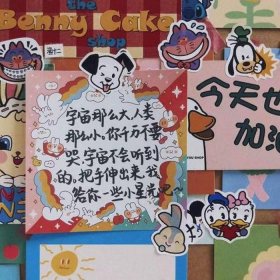 the
Benny Cake
shop
宇宙那么大，人类
那么小，你千万不要
哭，宇宙不会听到
的。把手伸出来，我
给你一些小星光吧～
今天也
加油